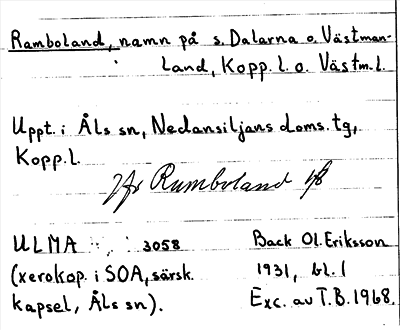 Ramboland, namn på s. Dalarna o. Västman-
land, Kopp. l. o. Västm. l.
Uppt. i Åls sn, Nedansiljans doms. tg,
Kopp. l.
Jfr Rumboland
ULMA 3058 Back Ol. Eriksson
(xerokop. i SOA, särsk. 1931, bl. 1
kapsel, Åls sn). Exc. av T.B. 1968.